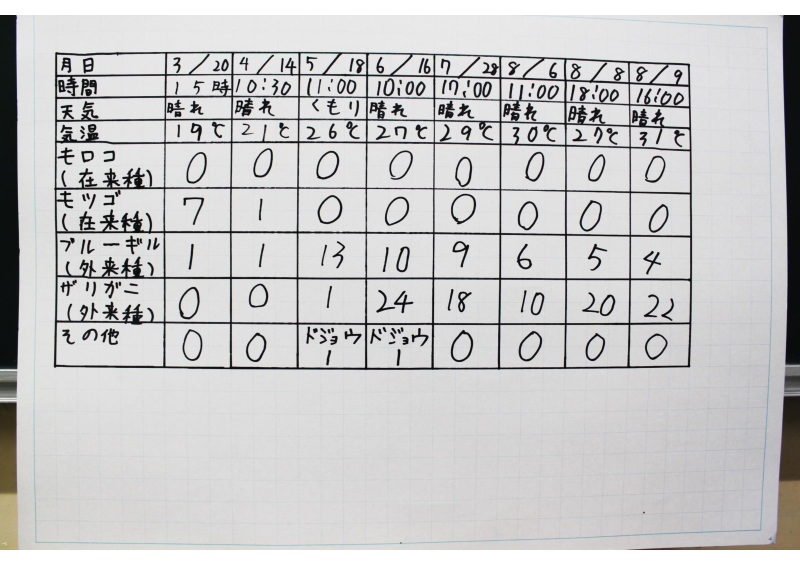 月日 3/20 4/14 5/18 6/16 7/28 8/6 8/8 8/9
時間 15時 10:30 11:00 10:00 17:00 11:00 18:00 16:00
天気 晴れ 晴れ くもり 晴れ 晴れ 晴れ 晴れ 晴れ
気温 19℃ 21℃ 26℃ 27℃ 29℃ 30℃ 27℃ 31℃
モロコ
(在来種) 0 0 0 0 0 0 0 0
モツゴ
(在来種) 7 1 0 0 0 0 0 0
ブルーギル
(外来種) 1 1 13 10 9 6 5 4
ザリガニ
(外来種) 0 0 1 24 18 10 20 22
その他 0 0 ドジョウ ドジョウ 0 0 0 0
1 1